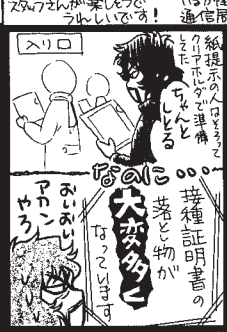 スタッフさんが楽しそうで
うれしいです!
通信展
入り口
紙提示の人はそろって
クリアホルダで準備
してた
ちゃんと
しとる
なのに・・・
接種証明書の
落とし物が
大変多く
なっています
おいおい
アカン
やろ